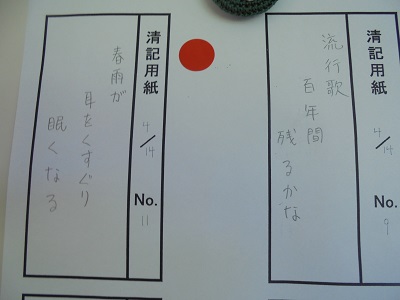 清記用紙 4/14 No. 9
流行歌
百年間
残るかな
清記用紙 4/14 No. 11
春雨が
耳をくすぐり
眠くなる